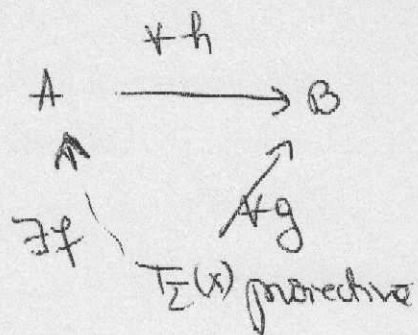 ∀h
A → B
∃f ∀g
T_Σ(x) projective